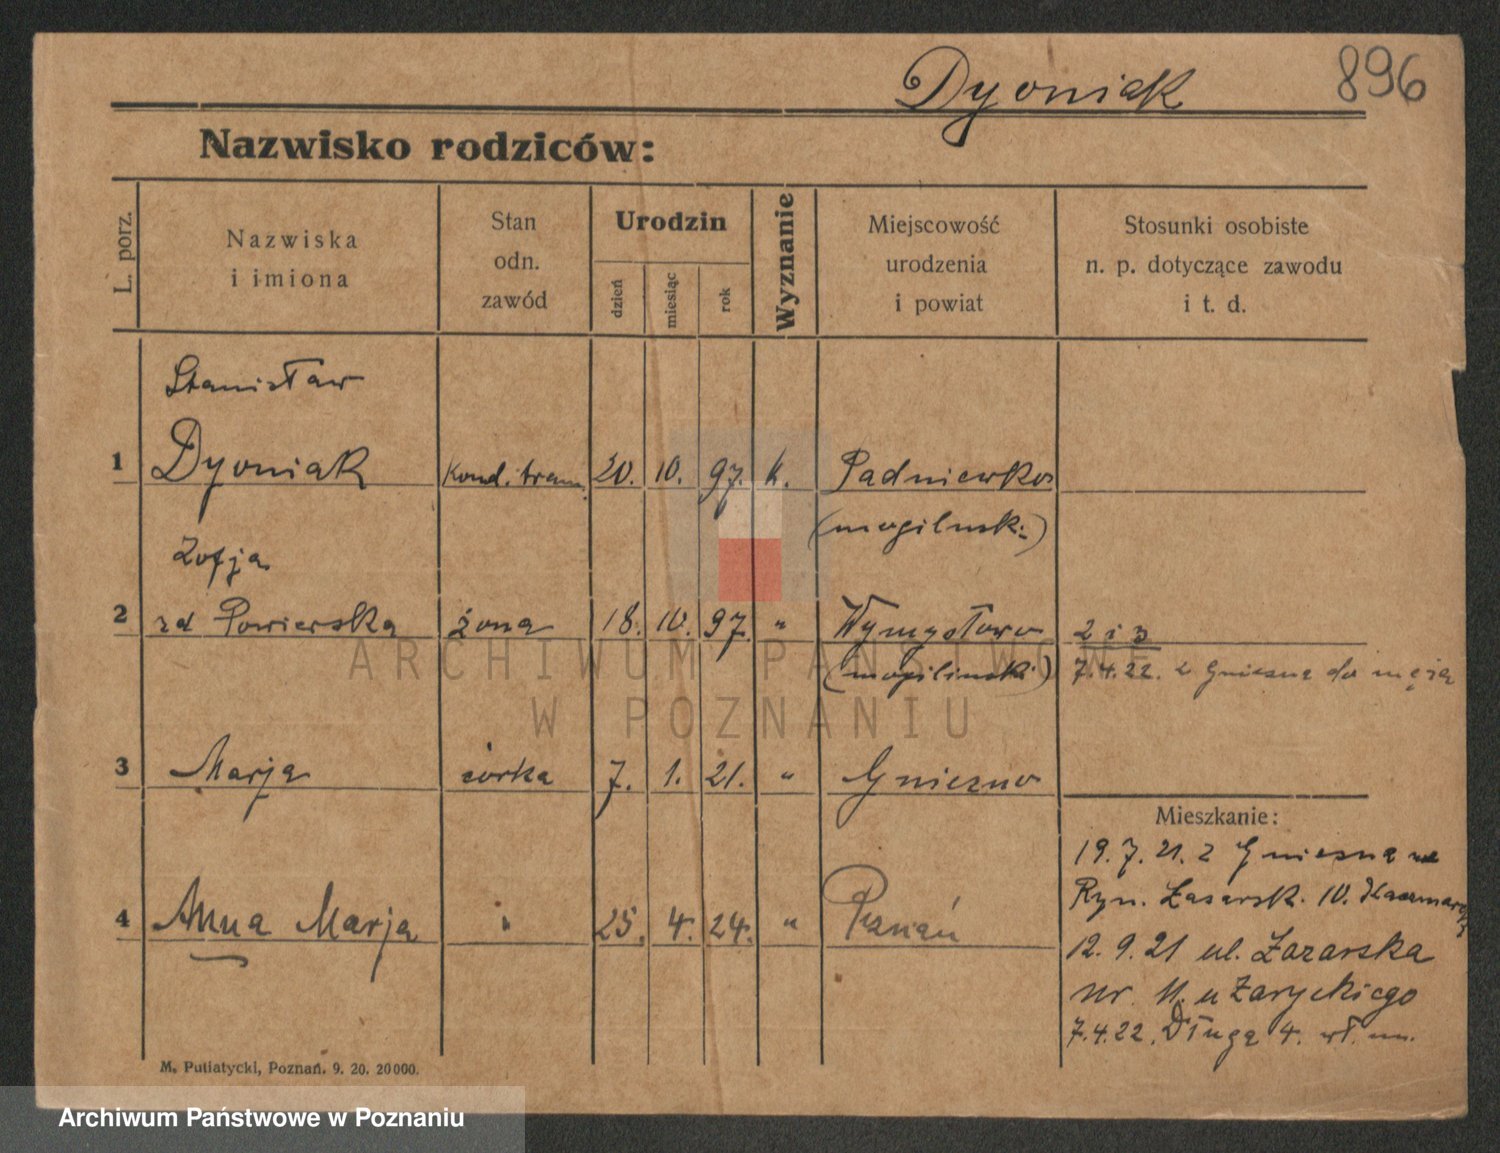 Dyoniak
896
Nazwisko rodziców:
L. porz.
Nazwiska
i imiona
Stan
odn.
zawód
Urodzin
dzień
miesiąc
rok
Wyznanie
Miejscowość
urodzenia
i powiat
Stosunki osobiste
n. p. dotyczące zawodu
i t. d.
Stanisław
1 Dyoniak Kond. tram. 20. 10. 97. k. Padniewko
(mogilnski)
Zofja
2 zd Powierska żona 18. 10. 97. " Wymysłowo 2 i 3
(mogilinski) 7.4.22. z Gniezna do męża
3 Marja córka 7. 1. 21. " Gniezno
Mieszkanie:
19.7.21. z Gniezna
Ryn. Łazarsk. 10.
4 Anna Marja " 25. 4. 24. " Poznań
12.9.21 ul. Łazarska
nr 11. u Zaryckiego
7.4.22. Długa 4. wł. m.
M. Putiatycki, Poznań. 9. 20. 20000.
ARCHIWUM PAŃSTWOWE
W POZNANIU
Archiwum Państwowe w Poznaniu